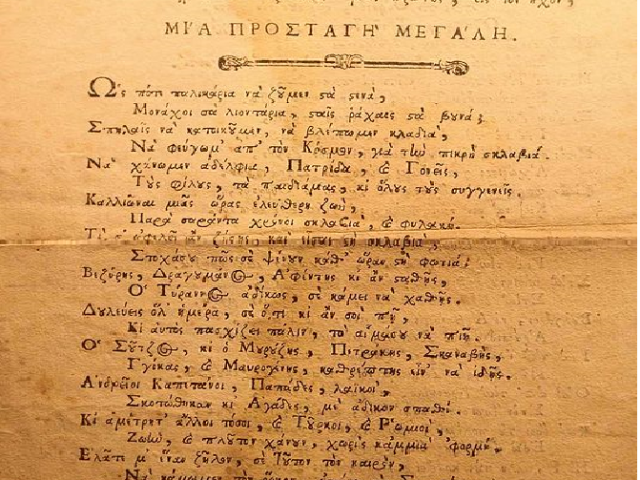 ΜΙ´Α ΠΡΟΣΤΑΓΗ` ΜΕΓΑ´ΛΗ.
Ὡς πότε παλικάρια νὰ ζοῦμεν ϛὰ ϛενὰ,
Μονάχοι σὰ λιοντάρια, ϛαῖς ῥάχαες ϛὰ βουνά;
Σπηλαῖς νὰ κατοικοῦμεν, νὰ βλέπωμεν κλαδιὰ,
Νὰ φεύγωμ' ἀπ' τὸν Κόσμον, γιὰ τὴν πικρὴ σκλαβιά.
Νὰ χάνωμεν ἀδέλφια, Πατρίδα, καὶ Γονεῖς,
Τοὺς φίλους, τὰ παιδιάμας, κι ὅλους τοὺς συγγενεῖς.
Καλλιῶναι μιᾶς ὥρας ἐλεύθερη ζωὴ,
Παρὰ σαράντα χρόνοι σκλαβιὰ, καὶ φυλακή.
Τί σ' ὠφελεῖ ἂν ζήσῃς, καὶ εἶσαι ϛὴ σκλαβιὰ,
Στοχάσου πῶς σὲ ψένουν καθ' ὥραν ϛὴ φωτιά.
Βεζύρης, Δραγουμάνος, Ἀφέντης κι ἂν ϛαθῇς,
Ὁ Τύραννος ἀδίκως, σὲ κάμει νὰ χαθῇς.
Δουλεύεις ὅλ' ἡμέρα, σὲ ὅ,τι κι ἂν σοὶ πῇ,
Κι αὐτὸς πασχίζει πάλιν, τὸ αἷμάσου νὰ πιῇ.
Ὁ Σοῦτζος, κι ὁ Μουρούζης, Πετράκης, Σκαναβῆς,
Γγίκας, καὶ Μαυρογένης, καθρέπτης εἶν' νὰ ἰδῇς.
Ἀνδρεῖοι Καπετάνοι, Παπάδες, λαϊκοὶ,
Σκοτώθηκαν κι Ἀγάδες, μὲ ἄδικον σπαθί.
Κι ἀμέτρητ' ἄλλοι τόσοι, καὶ Τοῦρκοι, καὶ Ῥωμιοὶ,
Ζωὴν, καὶ πλοῦτον χάνουν, χωρὶς κἀμμιὰ 'φορμή.
Ἐλᾶτε μ' ἕναν ζῆλον, σὲ τοῦτον τὸν καιρὸν,